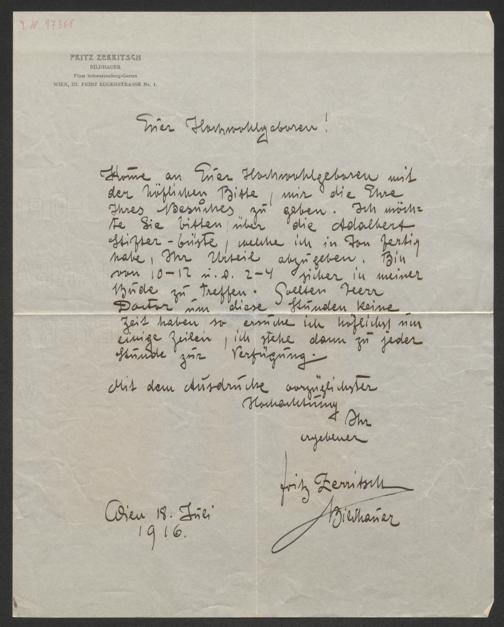 I.N. 97368
FRITZ ZERRITSCH
BILDHAUER
Fürst Schwarzenberg-Garten
WIEN, III. PRINZ EUGENSTRASSE Nr. 1.
Euer Hochwohlgeboren!
Kome an Euer Hochwohlgeboren mit
der höflichen Bitte, mir die Ehre
Ihres Besuches zu geben. Ich möch-
te Sie bitten, über die Adalbert
Stifter-büste, welche ich in Ton fertig
habe, Ihr Urteil abzugeben. Bin
von 10-12 u. v. 2-4 sicher in meiner
Bude zu treffen. Sollten Herr
Doctor um diese Stunden keine
Zeit haben, so ersuche ich höflichst um
einige Zeilen, ich stehe dann zu jeder
Stunde zur Verfügung.
Mit dem Ausdrucke vorzüglichster
Hochachtung
Ihr
ergebener
Fritz Zerritsch
Bildhauer
Wien 18. Juli
1916.